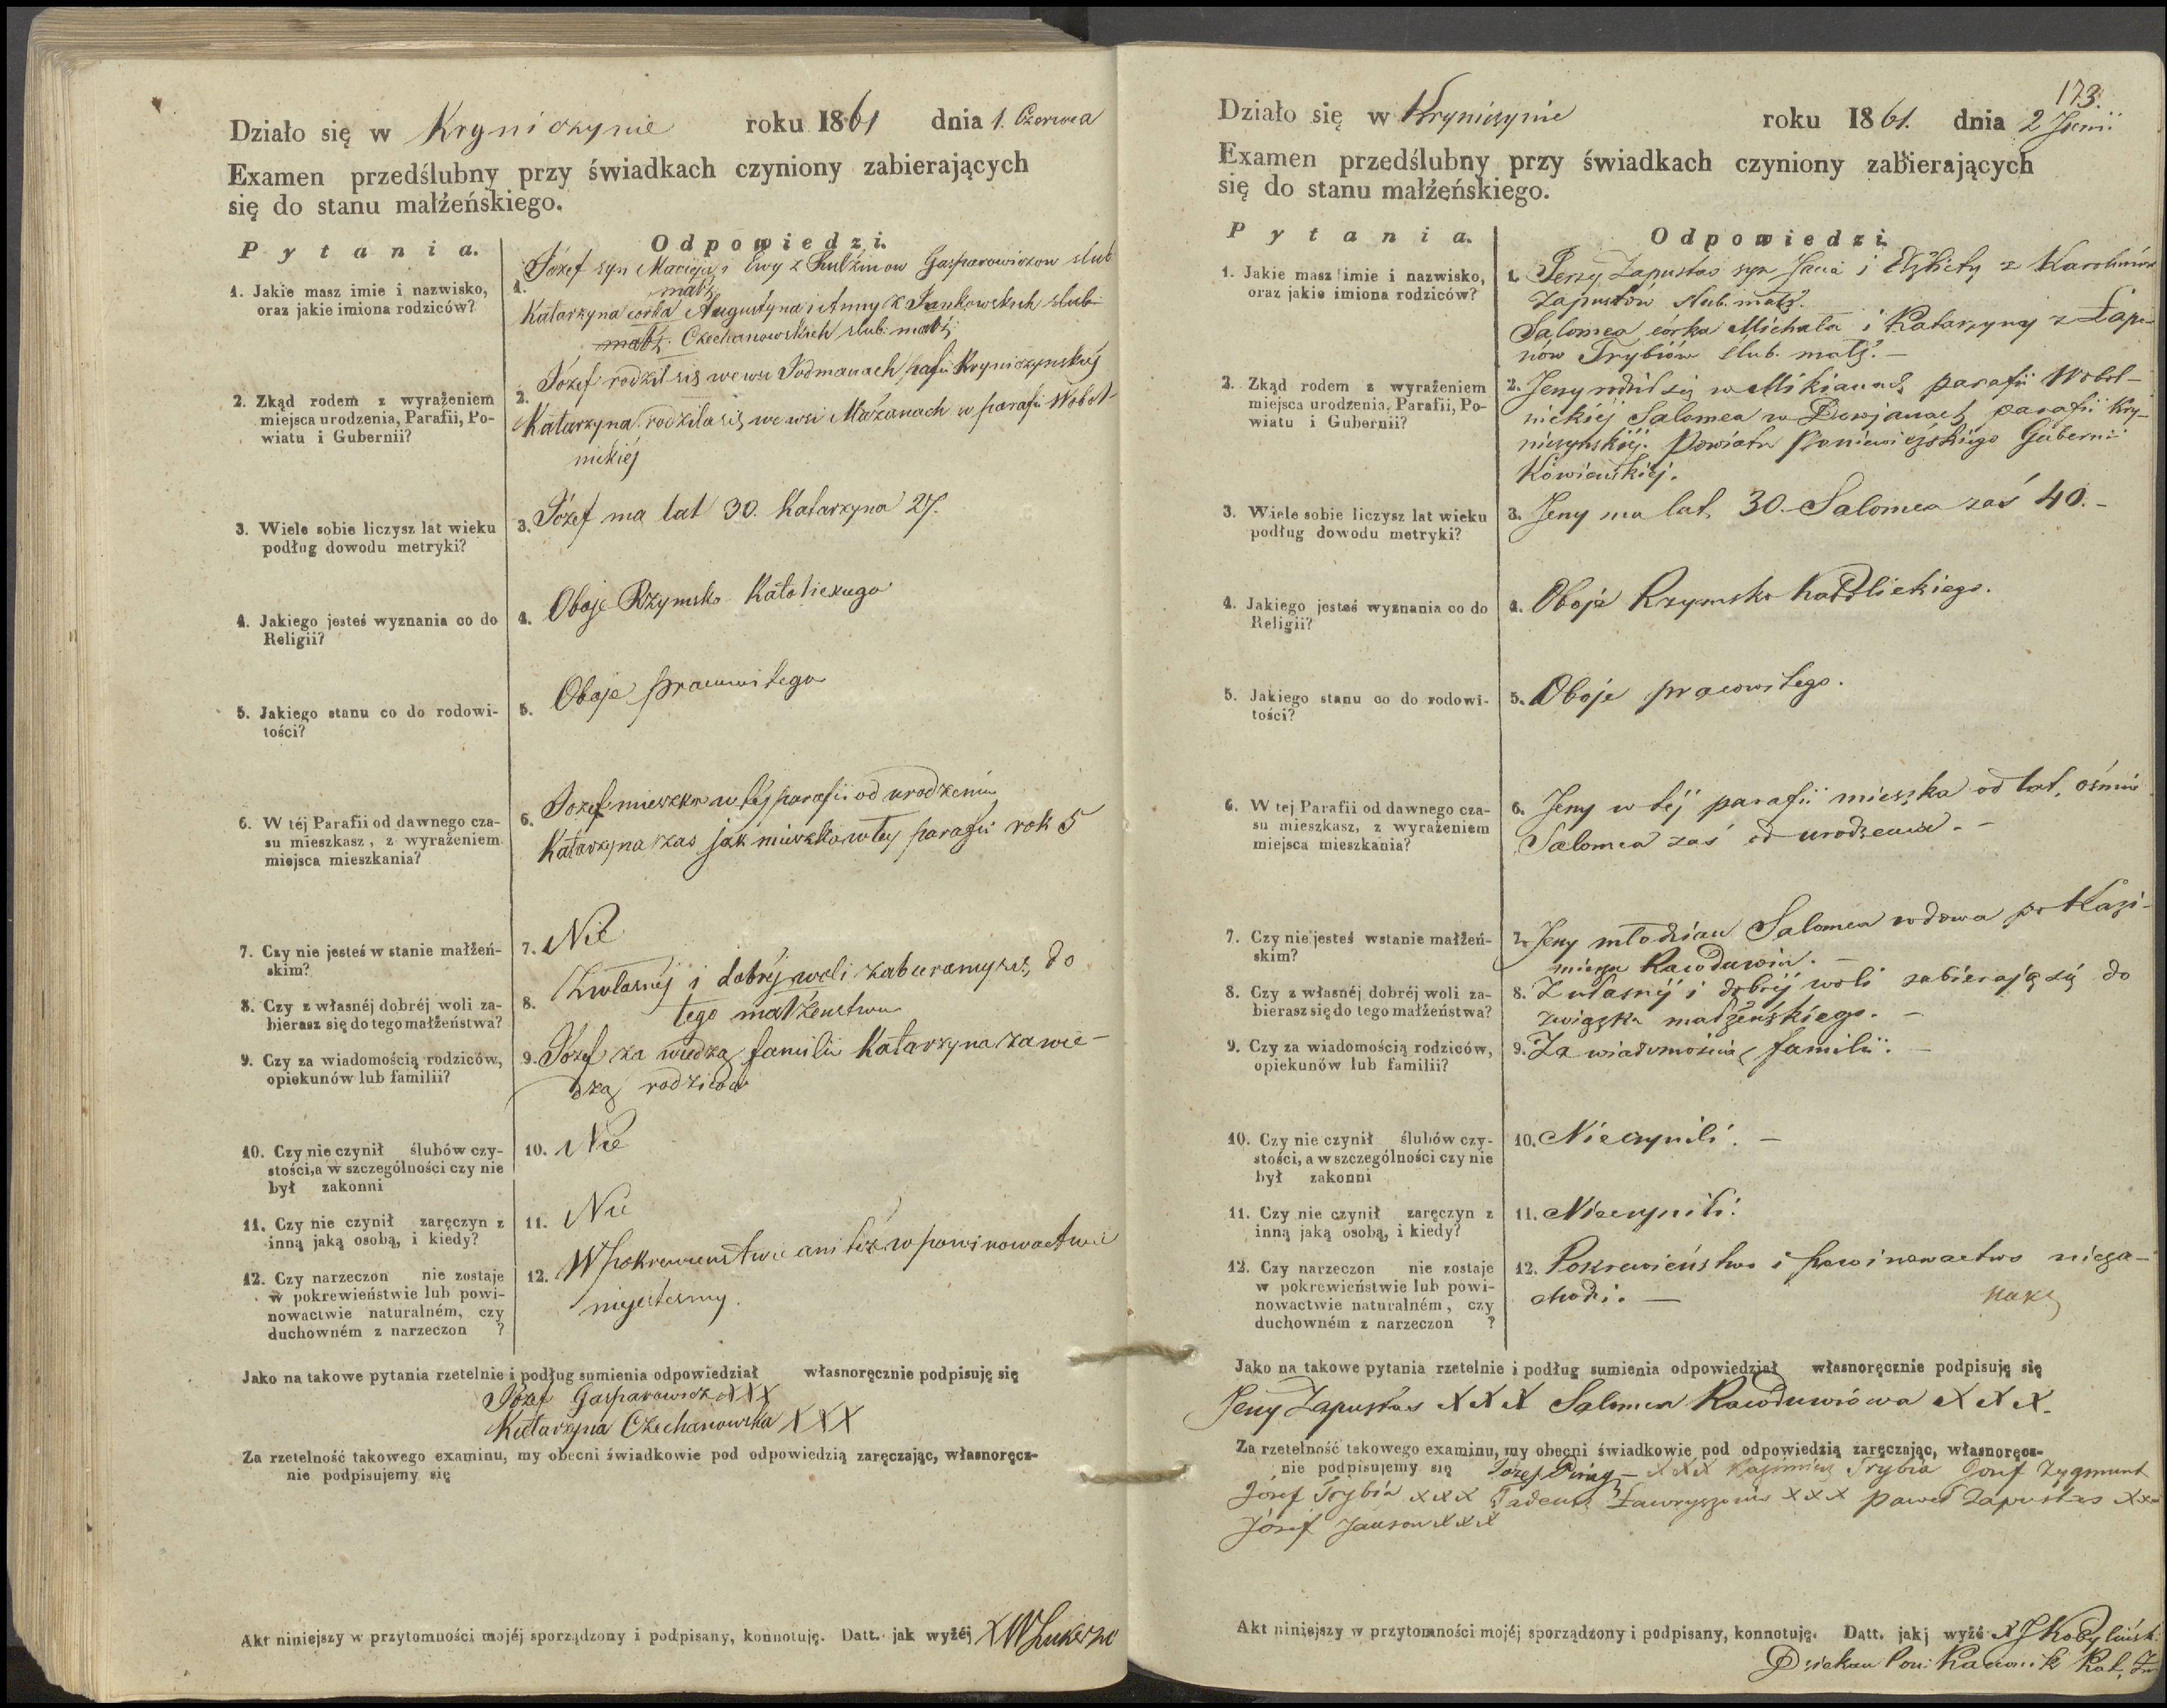 Działo się w Kryniczynie roku 1861 dnia 1. Czerwca
Examen przedślubny przy świadkach czyniony zabierających
się do stanu małżeńskiego.
Pytania. Odpowiedzi.
1. Jakie masz imie i nazwisko,
oraz jakie imiona rodziców?
1. Józef syn Macieja i Ewy z Gasparowiczow slub
małż
Katarzyna corka Augustyna i Anny z Jankowskich slub
małż. Czechanowskich slub: małż:
2. Zkąd rodem z wyrażeniem
miejsca urodzenia, Parafii, Po-
wiatu i Gubernii?
2. Józef rodził się we wsi Sodmanach parafii Kryniczynskiej
Katarzyna rodziła się we wsi Mażanach w parafii Wobol-
nikiéj
3. Wiele sobie liczysz lat wieku
podług dowodu metryki?
3. Józef ma lat 30. Katarzyna 27.
4. Jakiego jesteś wyznania co do
Religii?
4. Oboje Rzymsko Katolickiego
5. Jakiego stanu co do rodowi-
tości?
5. Oboje pracowitego
6. W téj Parafii od dawnego cza-
su mieszkasz, z wyrażeniem
miejsca mieszkania?
6. Józef mieszka w téj parafii od urodzenia
Katarzyna zas jak mieszka w tej parafii rok 5
7. Czy nie jesteś w stanie małżeń-
skim?
7. Nie
8. Czy z własnéj dobréj woli za-
bierasz się do tego małżeństwa?
8. Z własnéj i dobréj woli zabieramy się do
tego małżeństwa
9. Czy za wiadomością rodziców,
opiekunów lub familii?
9. Józef za wiedzą familii Katarzyna za wie-
dzą rodziców
10. Czy nie czynił ślubów czy-
stości, a w szczególności czy nie
był zakonni
10. Nie
11. Czy nie czynił zaręczyn z
inną jaką osobą, i kiedy?
11. Nie
12. Czy narzeczon nie zostaje
w pokrewieństwie lub powi-
nowactwie naturalném, czy
duchowném z narzeczon ?
12. W pokrewienstwie ani też w powinowactwie
niejestesmy.
Jako na takowe pytania rzetelnie i podług sumienia odpowiedział własnoręcznie podpisuję się
Józef Gasparowicz XXX
Katarzyna Czechanowska XXX
Za rzetelność takowego examinu, my obecni świadkowie pod odpowiedzią zaręczając, własnoręcz-
nie podpisujemy się
Akt niniejszy w przytomności mojéj sporządzony i podpisany, konnotuję. Datt. jak wyżéj
173.
Działo się w Kryniczynie roku 1861. dnia 2 Junii
Examen przedślubny przy świadkach czyniony zabierających
się do stanu małżeńskiego.
Pytania. Odpowiedzi
1. Jakie masz imie i nazwisko,
oraz jakie imiona rodziców?
1. Jerzy Zapustas syn Jana i Elżbiety z Karolinów
Zapustów slub. małż.
Salomea córka Michała i Katarzyny z Łapi-
nów Trybiów slub. małż. –
2. Zkąd rodem z wyrażeniem
miejsca urodzenia, Parafii, Po-
wiatu i Gubernii?
2. Jerzy rodził się w Mikianach parafii Wobol-
nickiéj Salomea w parafii Kry-
niczynskiéj. Powiatu Poniewieżskiego Gubernii
Kowieńskiéj.
3. Wiele sobie liczysz lat wieku
podług dowodu metryki?
3. Jerzy ma lat 30. Salomea zaś 40. –
4. Jakiego jesteś wyznania co do
Religii?
4. Oboje Rzymsko Katolickiego.
5. Jakiego stanu co do rodowi-
tości?
5. Oboje pracowitego.
6. W tej Parafii od dawnego cza-
su mieszkasz, z wyrażeniem
miejsca mieszkania?
6. Jerzy w téj parafii mieszka od lat, ośmiu
Salomea zaś od urodzenia. –
7. Czy nie jesteś wstanie małżeń-
skim?
7. Jerzy młodzian Salomea wdowa po Kazi-
mierzu . –
8. Czy z własnéj dobréj woli za-
bierasz się do tego małżeństwa?
8. Z własnéj i dobréj woli zabierają się do
związku małżeńskiego. –
9. Czy za wiadomością rodziców,
opiekunów lub familii?
9. Za wiadomością familii. –
10. Czy nie czynił ślubów czy-
stości, a w szczególności czy nie
był zakonni
10. Nieczynili. –
11. Czy nie czynił zaręczyn z
inną jaką osobą, i kiedy?
11. Nieczynili.
12. Czy narzeczon nie zostaje
w pokrewieństwie lub powi-
nowactwie naturalném, czy
duchowném z narzeczon ?
12. Pokrewieństwo i powinowactwo nieza-
chodzi. –
Jako na takowe pytania rzetelnie i podług sumienia odpowiedział własnoręcznie podpisuję się
Jerzy Zapustas XXX Salomea XXX.
Za rzetelność takowego examinu, my obecni świadkowie pod odpowiedzią zaręczając, własnoręcz-
nie podpisujemy się Józef – XXX Kazimierz Trybia Józef Zygmunt
Józef Trybia XXX Tadeusz XXX Paweł Zapustas XXX
Józef Janson XXX
Akt niniejszy w przytomności mojéj sporządzony i podpisany, konnotuję. Datt. jakj wyżé X J Kobyliński
Dziekan Kanonik